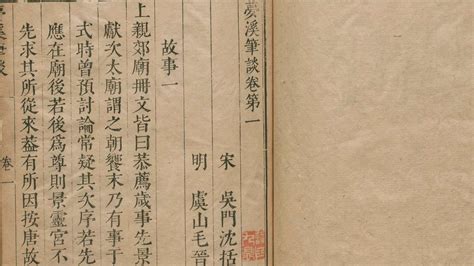 夢溪筆談卷第一
宋 吳門沈括
明 虞山毛晉
故事一
上親郊廟冊文皆曰恭薦歲事先景
獻次太廟謂之朝饗末乃有事于
式時曾預討論常疑其次序若先
應在廟後若後爲尊則景靈宮不
先求其所從來蓋有所因按唐故
卷一